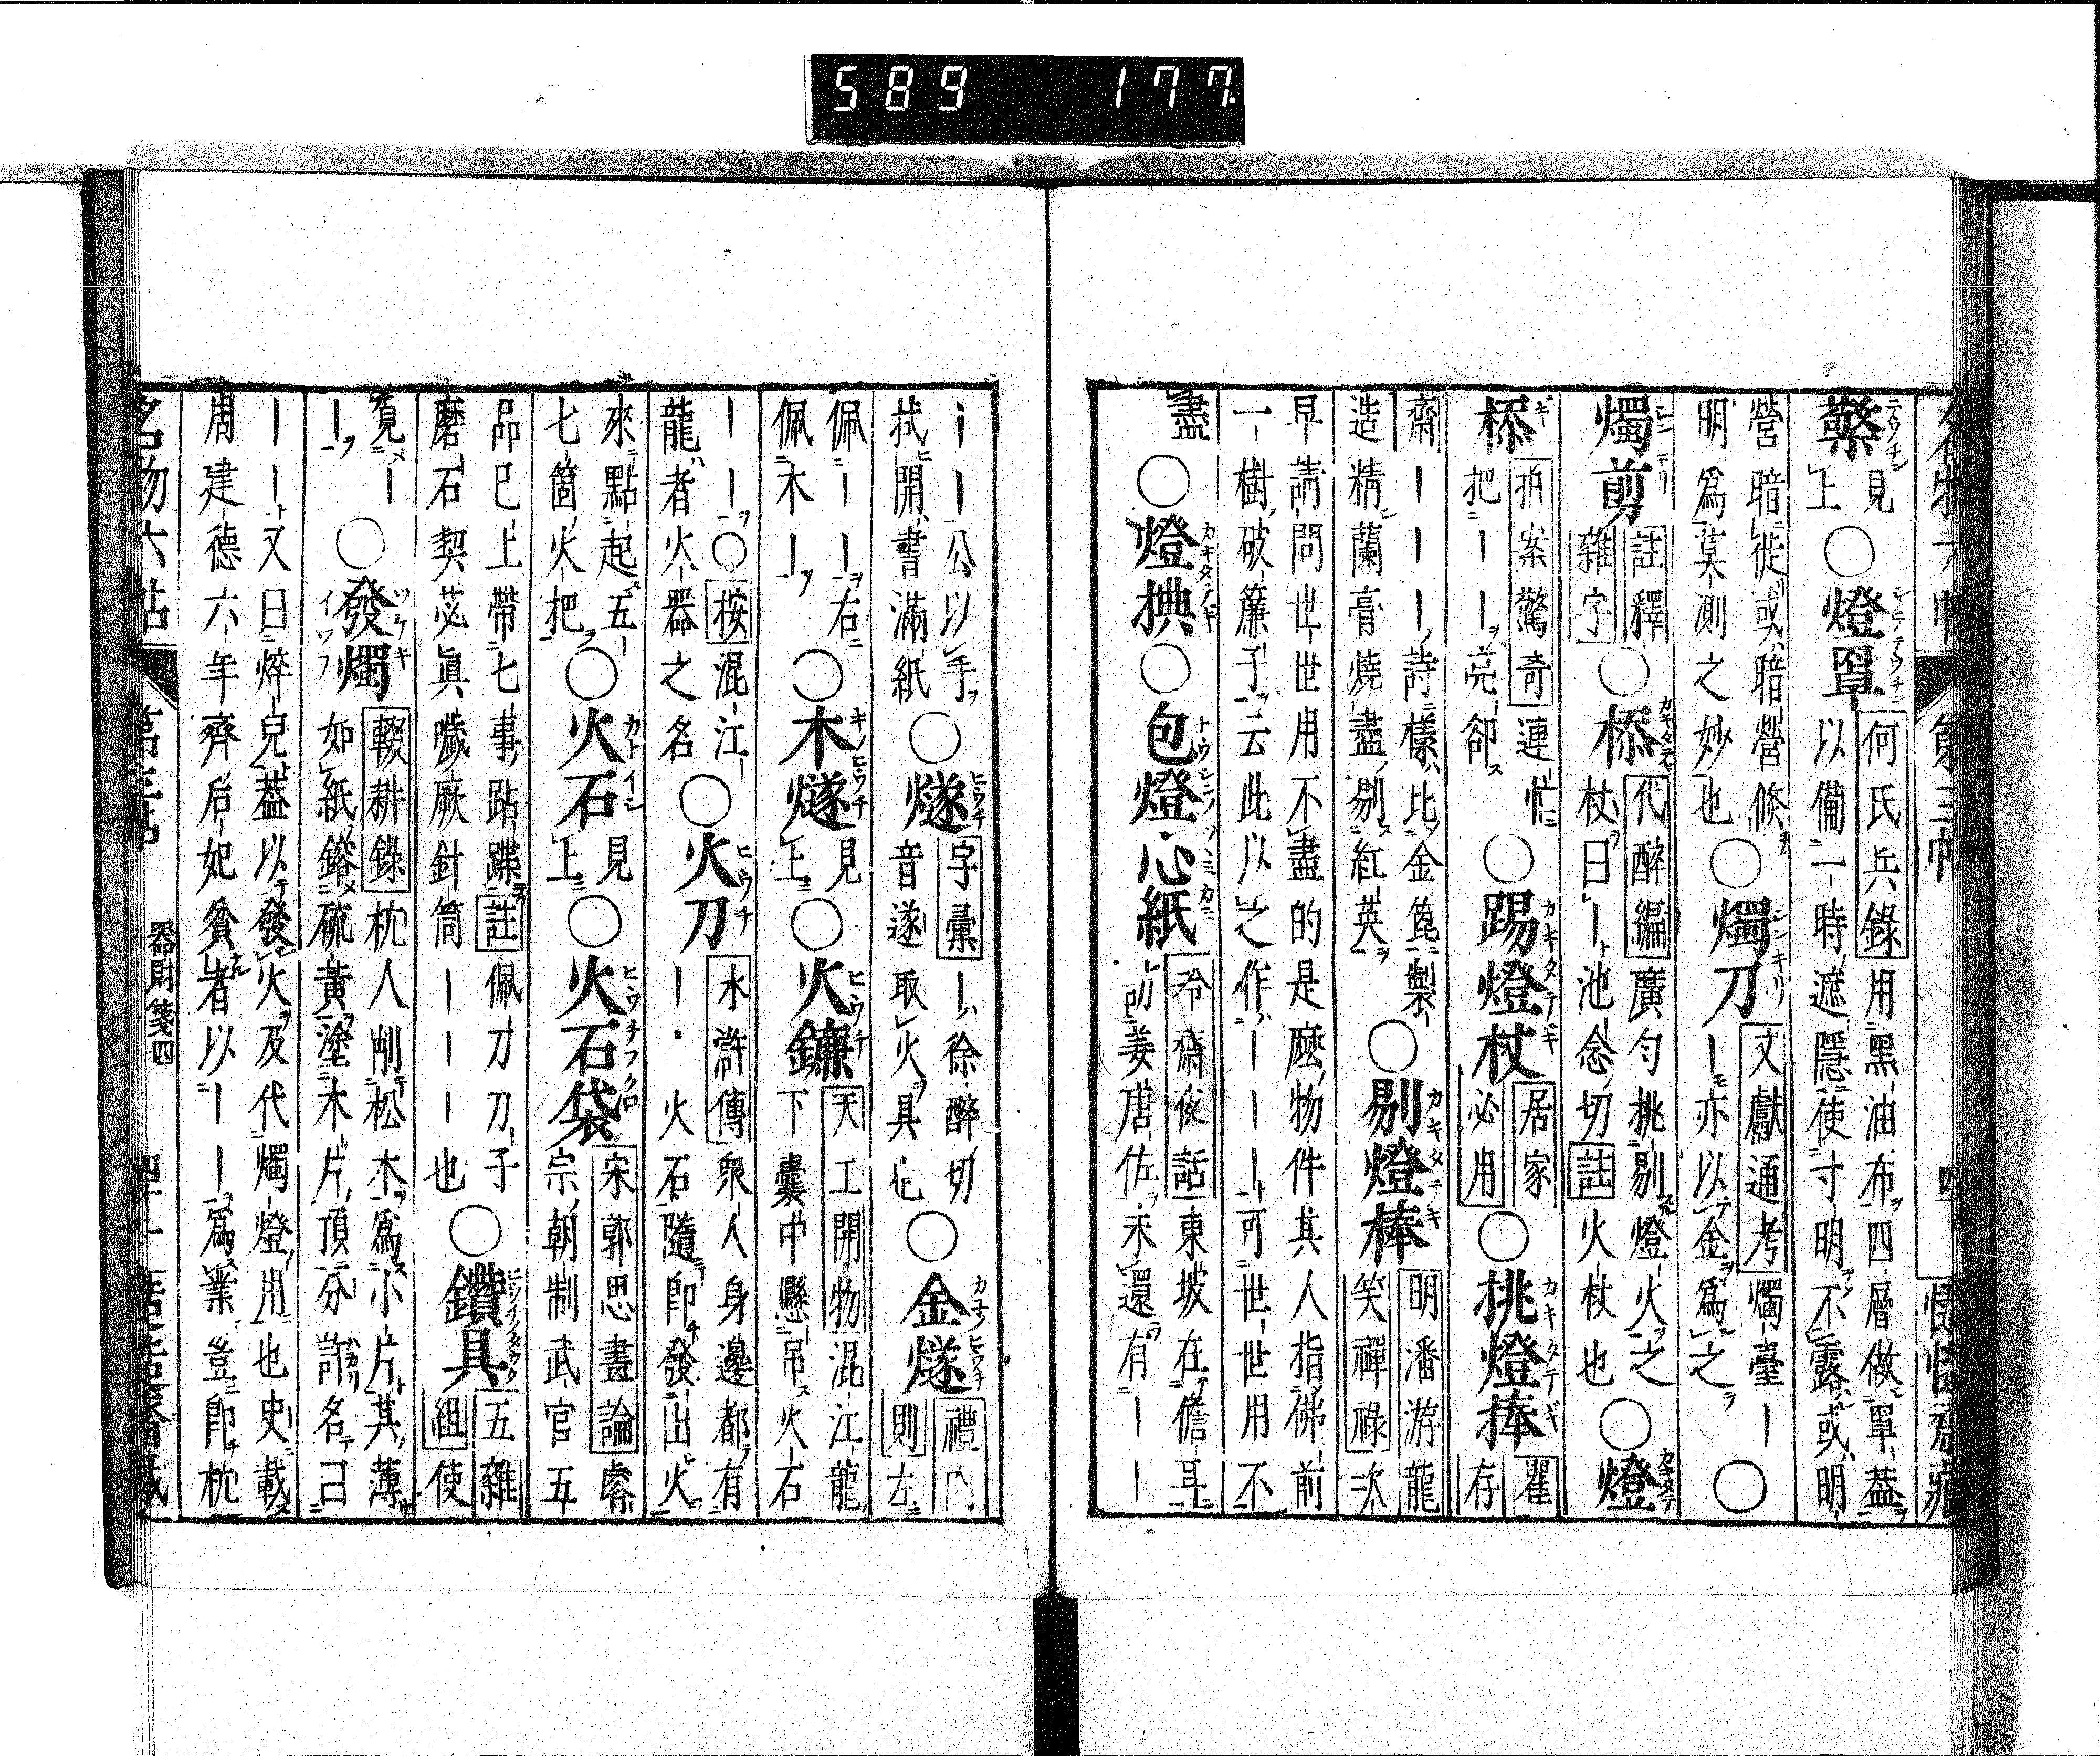 檠見上○燈罩何氏兵錄用黑油布四層做罩蓋以備一時遮隱使寸明不露或明
營暗徙或暗營修明爲莫測之妙也○燭刀文獻通考燭臺ーー亦以金爲之○
燭剪註釋雜字○㮇代醉編廣勻挑剔燈火之杖曰ー池念切註火杖也○燈
㮇拍案驚奇連忙把ーー亮卻○踢燈杖居家必用○挑燈捧瞿存
齋ーーー詩樣比金篦製造精蘭膏燒盡剔紅英○剔燈棒明潘游龍笑禪祿次
早請問世世用不盡的是麼物件其人指佛前一樹破簾子云此以之作ーーー可世世用不
盡○燈㨫○包燈心紙冷齋夜話東坡在儋耳訪姜唐佐未還有ーー
ーーー公以手拭開書滿紙○燧字彙ー徐醉切音遂取火具也○金燧禮內則左
佩ーー右佩木ー○木燧見上○火鐮天工開物混江龍下囊中懸吊火石
ーー○按混江龍者火器之名○火刀水滸傳衆人身邊都有ー・火石隨卽發出火
來點起五七箇火把○火石見上○火石袋宋郭思畫論睿宗朝制武官五
品已上帶七事跕蹀註佩刀刀子磨石契苾眞噦厥針筒ーーー也○鑽具五雜組使
覓ーー○發燭輟耕錄枕人削松木爲小片其薄如紙鎔硫黃塗木片頂分許名曰
ーー又曰焠兒蓋以發火及代燭燈用也史載周建德六年齊后妃貧者以ーー爲業豈卽枕
名物六帖 第三帖 器財箋四 四十一
589 177